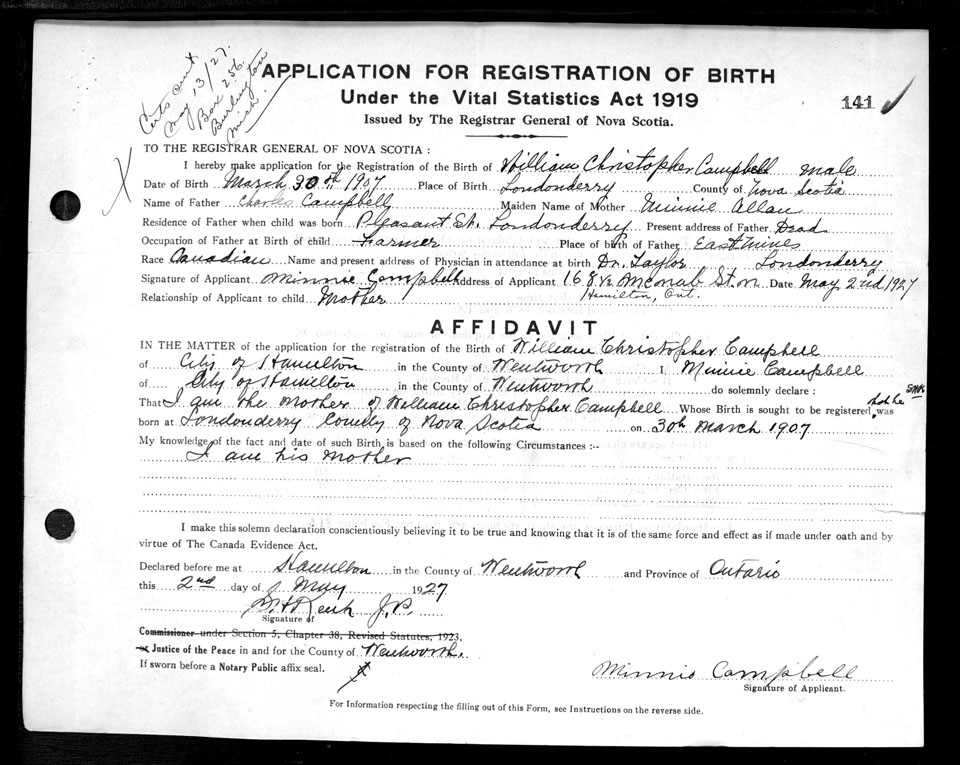 Certs sent
May 13/27.
Box 256.
Burlington
Mich.
APPLICATION FOR REGISTRATION OF BIRTH
Under the Vital Statistics Act 1919
141
Issued by The Registrar General of Nova Scotia.
TO THE REGISTRAR GENERAL OF NOVA SCOTIA :
I hereby make application for the Registration of the Birth of William Christopher Campbell male
Date of Birth March 30th, 1907 Place of Birth Londonderry County of Nova Scotia
Name of Father Charles Campbell Maiden Name of Mother Minnie Allan
Residence of Father when child was born Pleasant St. Londonderry Present address of Father Dead
Occupation of Father at Birth of child Farmer Place of birth of Father East Mines
Race Canadian Name and present address of Physician in attendance at birth Dr. Taylor Londonderry
Signature of Applicant Minnie Campbell Address of Applicant 168½ McNab St. N Date May 2nd 1927
Relationship of Applicant to child Mother Hamilton, Ont.
AFFIDAVIT
IN THE MATTER of the application for the registration of the Birth of William Christopher Campbell
of City of Hamilton in the County of Wentworth I Minnie Campbell
of City of Hamilton in the County of Wentworth do solemnly declare :
That I am the mother of William Christopher Campbell Whose Birth is sought to be registered that he was
born at Londonderry County of Nova Scotia on 30th March 1907
My knowledge of the fact and date of such Birth is based on the following Circumstances :–
I am his mother
I make this solemn declaration conscientiously believing it to be true and knowing that it is of the same force and effect as if made under oath and by
virtue of The Canada Evidence Act.
Declared before me at Hamilton in the County of Wentworth and Province of Ontario
this 2nd day of May 1927
J.P.
Signature of
Commissioner under Section 5, Chapter 38, Revised Statutes, 1923,
or Justice of the Peace in and for the County of Wentworth.
If sworn before a Notary Public affix seal.
Minnie Campbell
Signature of Applicant.
For Information respecting the filling out of this Form, see Instructions on the reverse side.